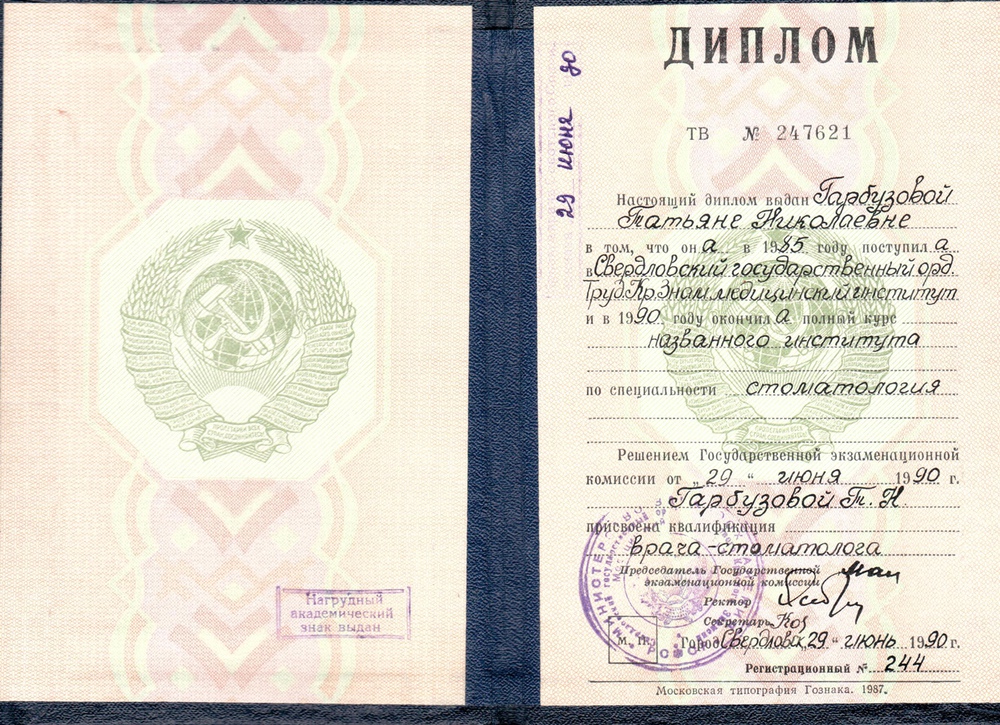 Нагрудный
академический
знак выдан
29 июня 90
ДИПЛОМ
ТВ № 247621
Настоящий диплом выдан Гарбузовой
Татьяне Николаевне
в том, что он а в 1985 году поступил а
в Свердловский государственный орд.
Труд.Кр.Знам. медицинский институт
и в 1990 году окончил а полный курс
названного института
по специальности стоматология
Решением Государственной экзаменационной
комиссии от „29 “ июня 1990 г.
Гарбузовой Т. Н
присвоена квалификация
врача-стоматолога
Председатель Государственной
экзаменационной комиссии
Ректор
Секретарь
М. П. Город Свердловск, 29 “ июнь 1990 г.
Регистрационный № 244
Московская типография Гознака. 1987.